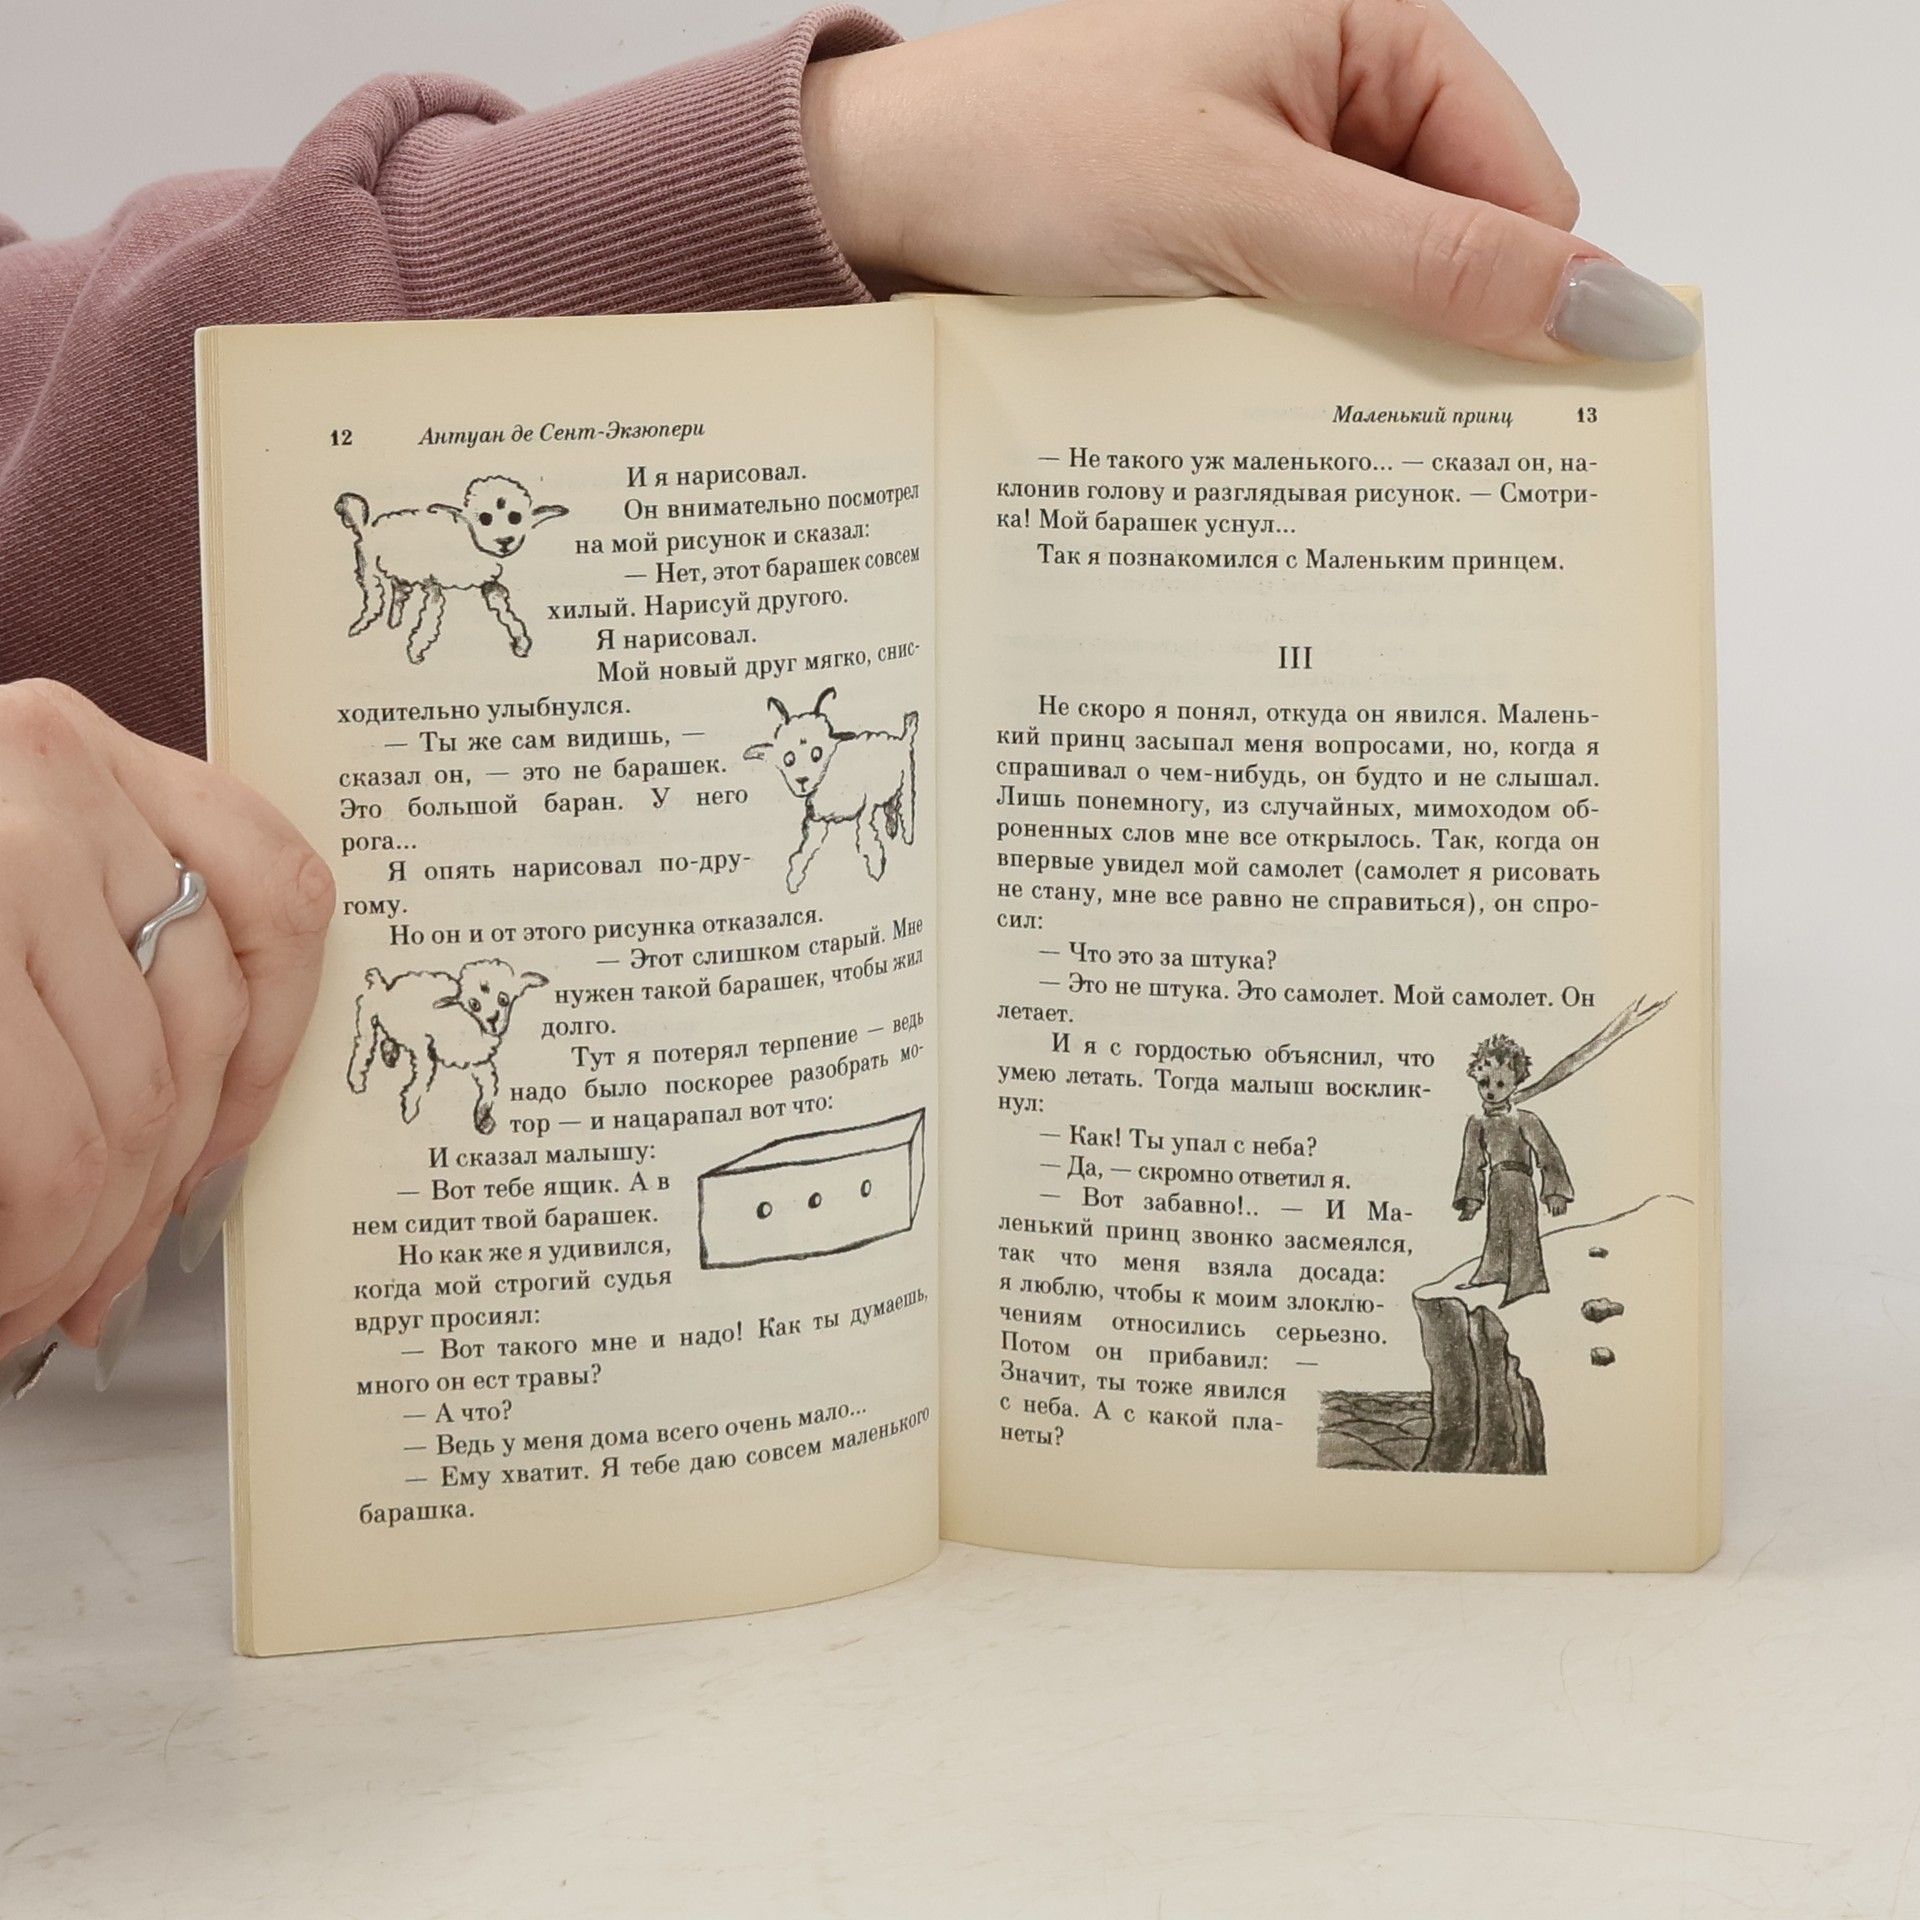 12 Антуан де Сент-Экзюпери
И я нарисовал.
Он внимательно посмотрел
на мой рисунок и сказал:
— Нет, этот барашек совсем
хилый. Нарисуй другого.
Я нарисовал.
Мой новый друг мягко, снис-
ходительно улыбнулся.
— Ты же сам видишь, —
сказал он, — это не барашек.
Это большой баран. У него
рога...
Я опять нарисовал по-дру-
гому.
Но он и от этого рисунка отказался.
— Этот слишком старый. Мне
нужен такой барашек, чтобы жил
долго.
Тут я потерял терпение — ведь
надо было поскорее разобрать мо-
тор — и нацарапал вот что:
И сказал малышу:
— Вот тебе ящик. А в
нем сидит твой барашек.
Но как же я удивился,
когда мой строгий судья
вдруг просиял:
— Вот такого мне и надо! Как ты думаешь,
много он ест травы?
— А что?
— Ведь у меня дома всего очень мало...
— Ему хватит. Я тебе даю совсем маленького
барашка.
Маленький принц 13
— Не такого уж маленького... — сказал он, на-
клонив голову и разглядывая рисунок. — Смотри-
ка! Мой барашек уснул...
Так я познакомился с Маленьким принцем.
III
Не скоро я понял, откуда он явился. Малень-
кий принц засыпал меня вопросами, но, когда я
спрашивал о чем-нибудь, он будто и не слышал.
Лишь понемногу, из случайных, мимоходом об-
роненных слов мне все открылось. Так, когда он
впервые увидел мой самолет (самолет я рисовать
не стану, мне все равно не справиться), он спро-
сил:
— Что это за штука?
— Это не штука. Это самолет. Мой самолет. Он
летает.
И я с гордостью объяснил, что
умею летать. Тогда малыш восклик-
нул:
— Как! Ты упал с неба?
— Да, — скромно ответил я.
— Вот забавно!.. — И Ма-
ленький принц звонко засмеялся,
так что меня взяла досада:
я люблю, чтобы к моим злоклю-
чениям относились серьезно.
Потом он прибавил: —
Значит, ты тоже явился
с неба. А с какой пла-
неты?